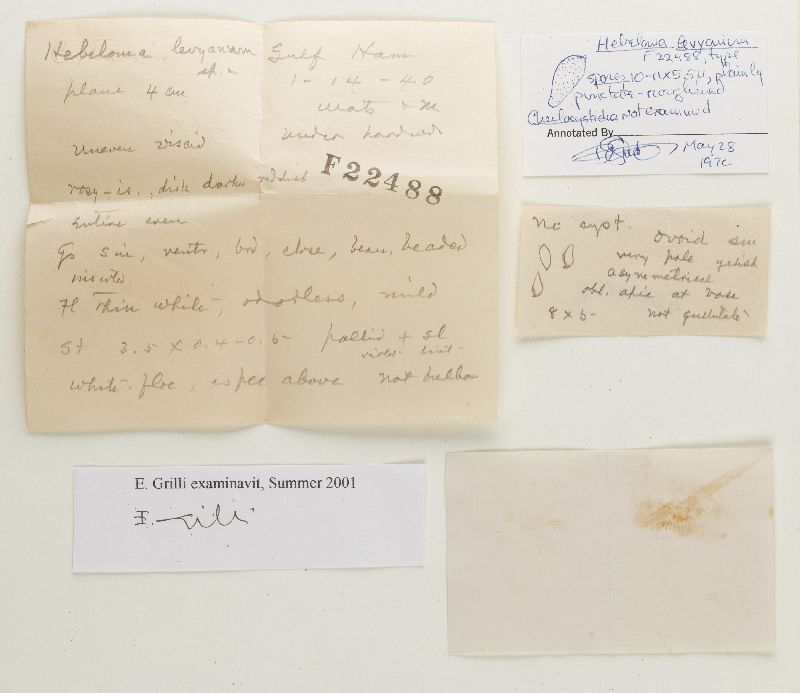 Hebeloma levyanum Gulf Ham
sp. n
1-14-40
plane 4 cm
mats & m
uneven viscid
under hardwds
rosy-is., disk darker reddish
F22488
entire even
Gs sin, ventr, brd, close, beaded
Fl thin white, odorless, mild
St 3.5 x 0.4-0.5 pallid + sl
violet tint
white-floc, espec above not bulbou
Hebeloma levyanum
F 22488, type
spores 10-11x5.5µ, plainly
punctate-roughened
Cheilocystidia not examined
Annotated By
May 28
No cyst. ovoid sm
very pale yelish
asymmetrical
obl. apic at base
8 x 5 not guttulate
E. Grilli examinavit, Summer 2001
E. Grilli